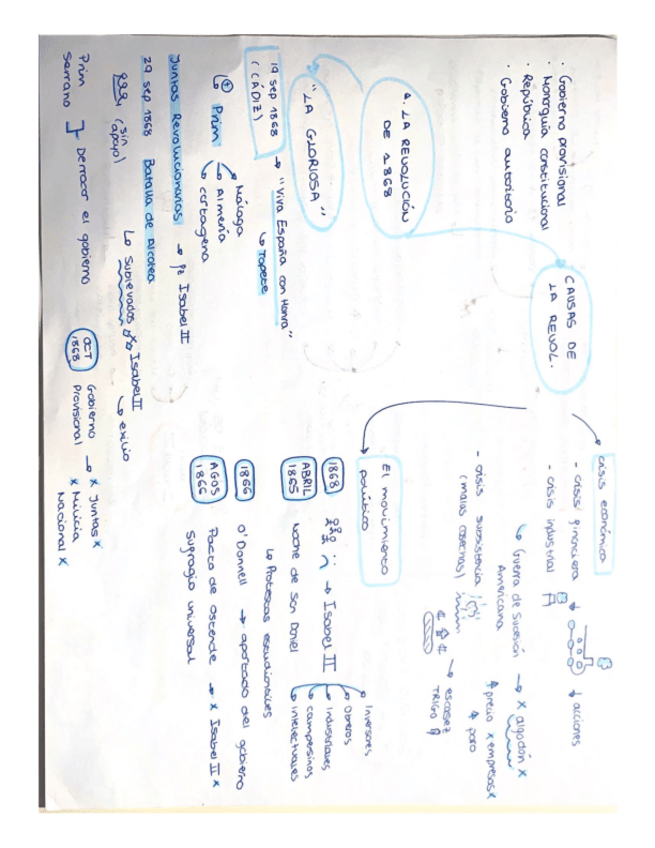 · Gobierno provisional
· Monarquía constitucional
· República
· Gobierno autoritario
4. LA REVOLUCIÓN
DE 1868
"LA GLORIOSA"
CAUSAS DE
LA REVOL.
crisis económica
- crisis financiera ↓ acciones
- crisis industrial
↳ Guerra de Sucesión
Americana → x algodón x
↑ precio x empresas x
↑ paro
- crisis subsistencia
(malas cosechas)
→ escasez
TRIGO
El movimiento
político
1868 → Isabel II
Inversores
Obreros
Industriales
campesinos
intelectuales
ABRIL
1865
Noche de San Daniel
↳ Protestas estudiantiles
1866
O'Donnell → apartado del gobierno
AGOS
1866
Pacto de Ostende → x Isabel II x
Sufragio universal
19 sep 1868
(CÁDIZ)
→ "Viva España con Honra"
↳ Topete
↳ Prim
Málaga
Almería
cartagena
Juntas Revolucionarias → Isabel II
29 sep 1868 Batalla de Alcolea
(sin
apoyo)
↳ Sublevados Isabel II
↳ exilio
Prim
Serrano
Derrocar el gobierno
OCT
1868
Gobierno
Provisional
→ x Juntas x
x Milicia
Nacional x